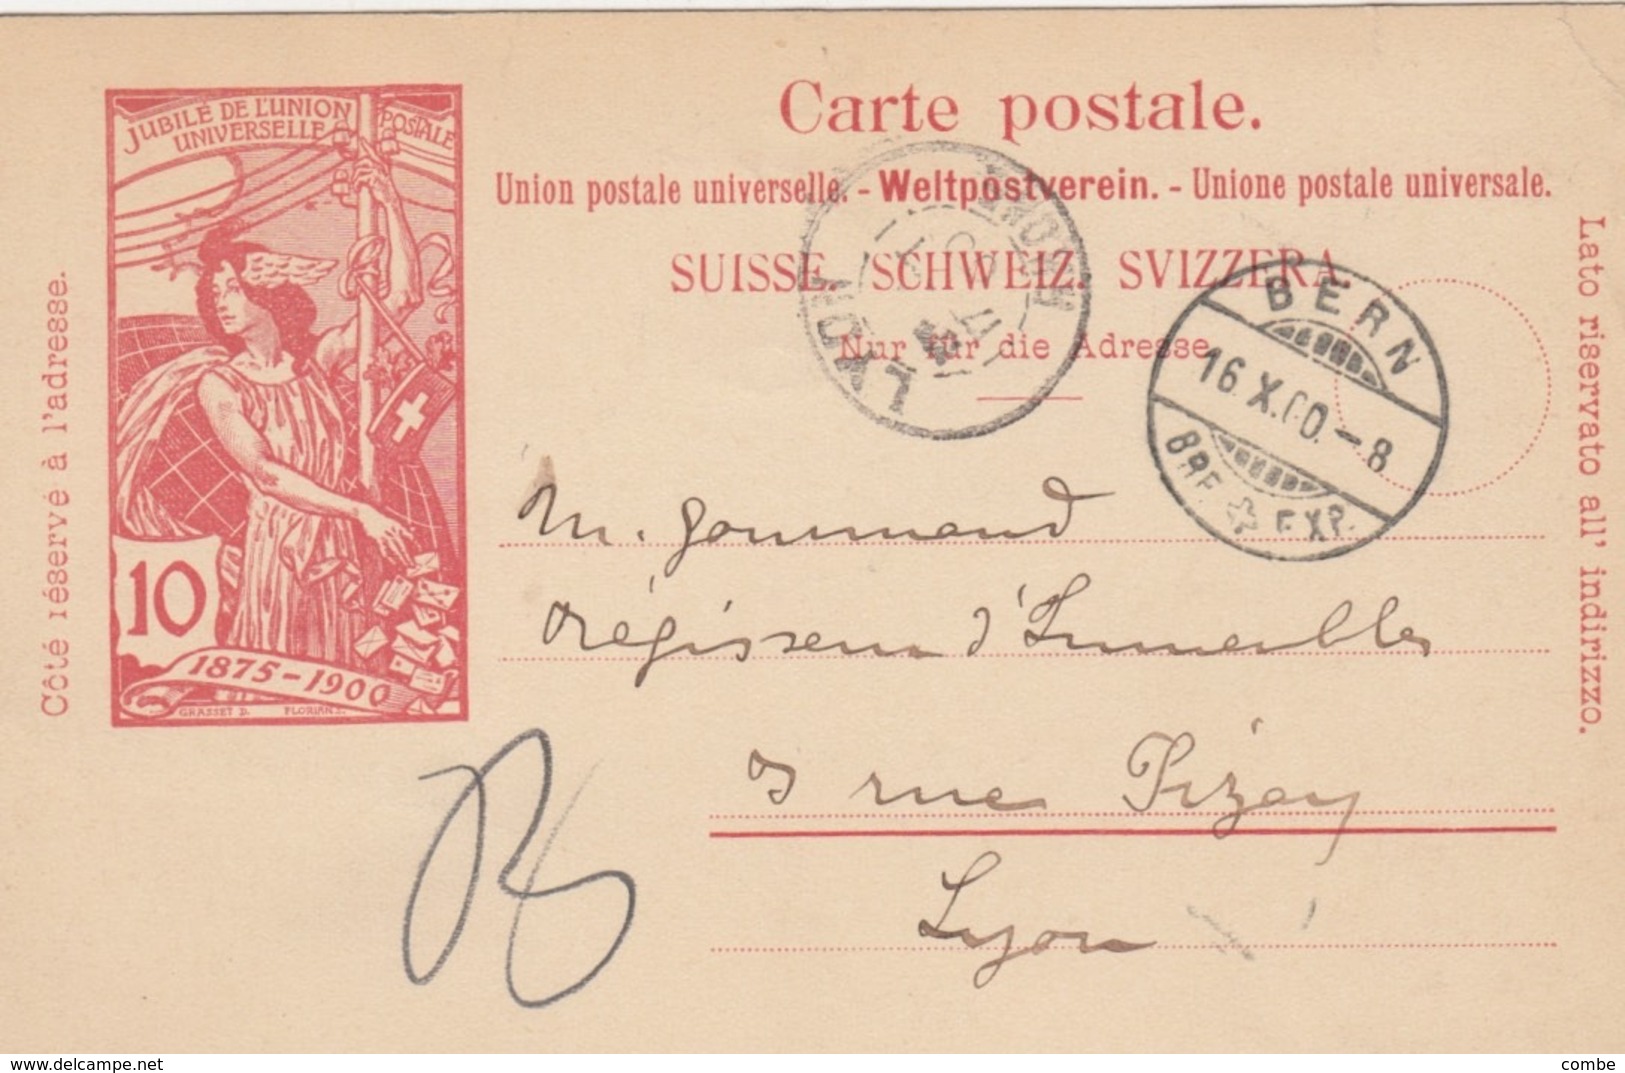 Carte postale.
Union postale universelle. - Weltpostverein. - Unione postale universale.
SUISSE. SCHWEIZ. SVIZZERA.
Nur für die Adresse.
Côté réservé à l'adresse.
Lato riservato all' indirizzo.
JUBILÉ DE L'UNION
POSTALE
UNIVERSELLE
10
1875-1900
GRASSET D. FLORIAN S.
LYON
RHONE
BERN
16.X.00.-8
BRF. EXP.
M. Gourmand
Régisseur d'Immeubles
3 rue Pizay
Lyon
www.delcampe.net
combe